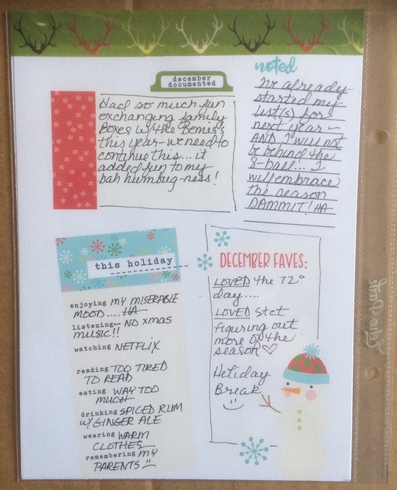 december
documented
Had so much fun
exchanging family
Boxes w/the
this year-we need to
continue this...it
added fun to my
bah humbug-ness!
noted
I've already
started my
list(s) for
next year—
AND I will not
be behind the
8-ball... I
will embrace
the season
DAMMIT! HA
this holiday
enjoying MY MISERABLE
MOOD....HA
listening—NO xmas
MUSIC!!
watching NETFLIX
reading TOO TIRED
TO READ
eating WAY TOO
MUCH
drinking SPICED RUM
w/ GINGER ALE
wearing WARM
CLOTHES
remembering MY
PARENTS
DECEMBER FAVES:
LOVED the 72°
day....
LOVED
figuring out
more of the
season
Holiday
Break